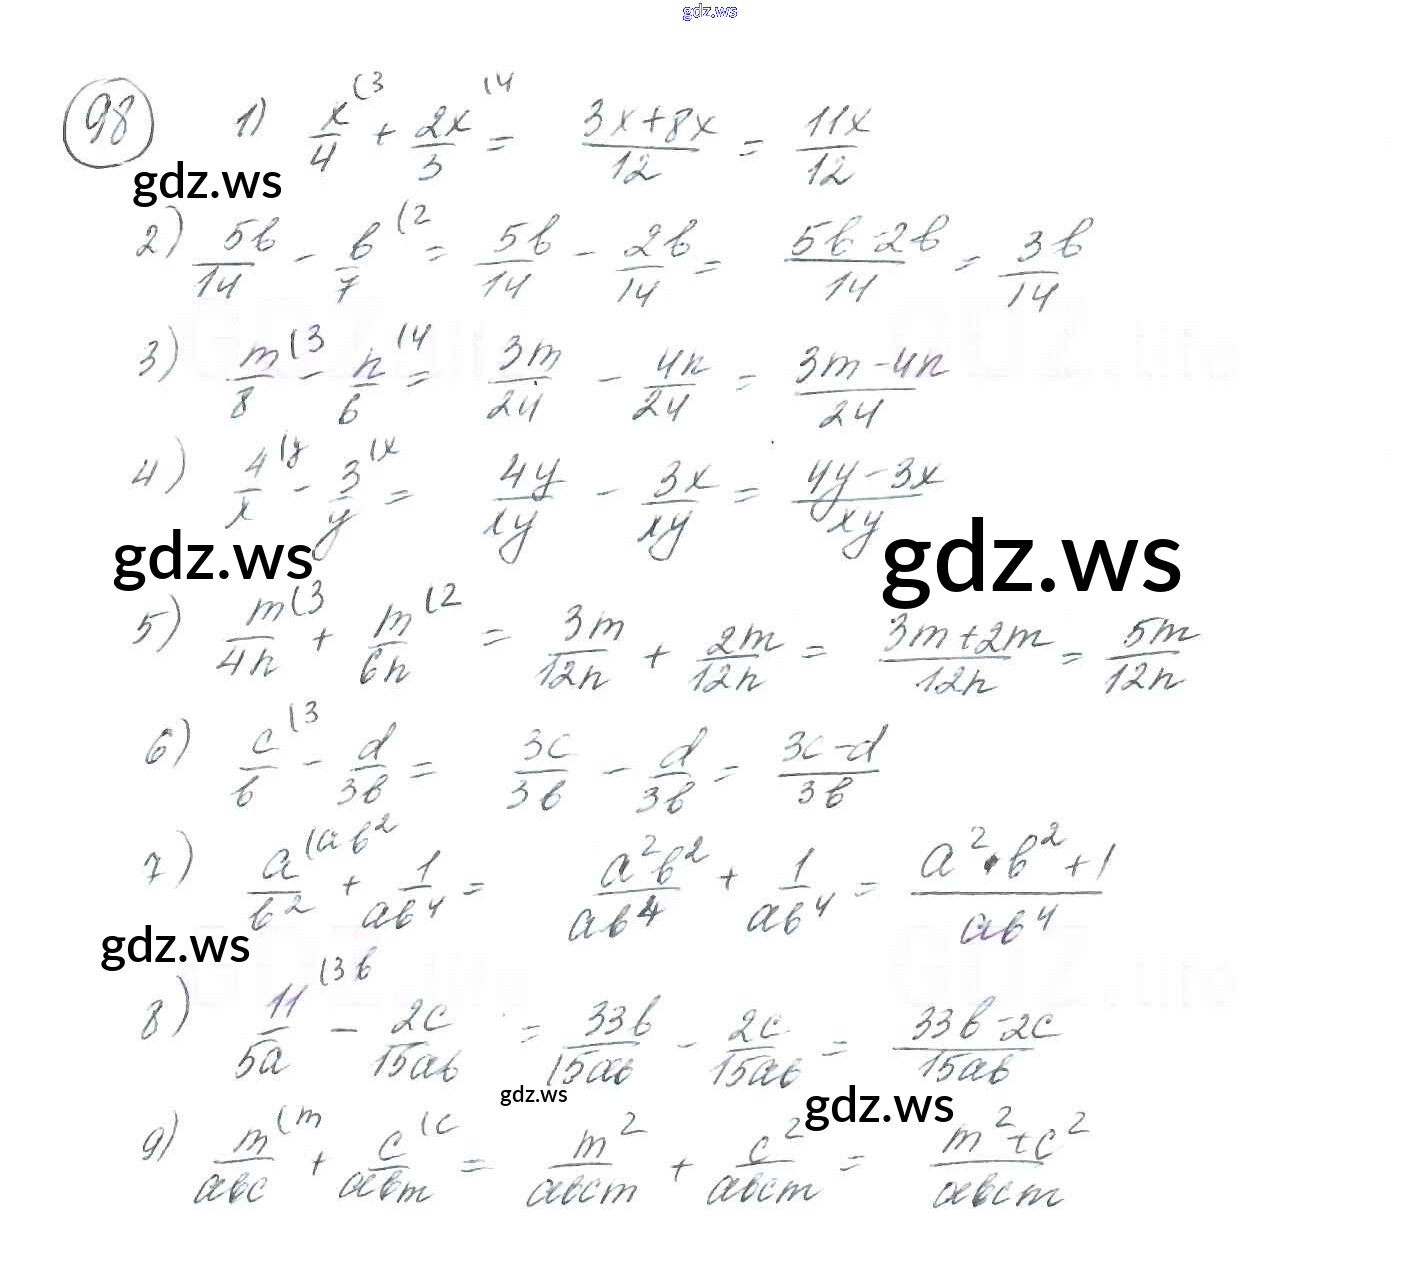 gdz.ws
98 1) x/4 (3 + 2x/3 (4 = (3x+8x)/12 = 11x/12
gdz.ws
2) 5b/14 - b/7 (2 = 5b/14 - 2b/14 = (5b-2b)/14 = 3b/14
GDZ.life GDZ.life
3) m/8 (3 - n/6 (4 = 3m/24 - 4n/24 = (3m-4n)/24
4) 4/x (y - 3/y (x = 4y/xy - 3x/xy = (4y-3x)/xy
gdz.ws gdz.ws
5) m/4n (3 + m/6n (2 = 3m/12n + 2m/12n = (3m+2m)/12n = 5m/12n
6) c/b (3 - d/3b = 3c/3b - d/3b = (3c-d)/3b
7) a/b² (ab² + 1/ab⁴ = a²b²/ab⁴ + 1/ab⁴ = (a²·b²+1)/ab⁴
gdz.ws
GDZ.life GDZ.life
8) 11/5a (3b - 2c/15ab = 33b/15ab - 2c/15ab = (33b-2c)/15ab
gdz.ws gdz.ws
9) m/abc (m + c/abm (c = m²/abcm + c²/abcm = (m²+c²)/abcm